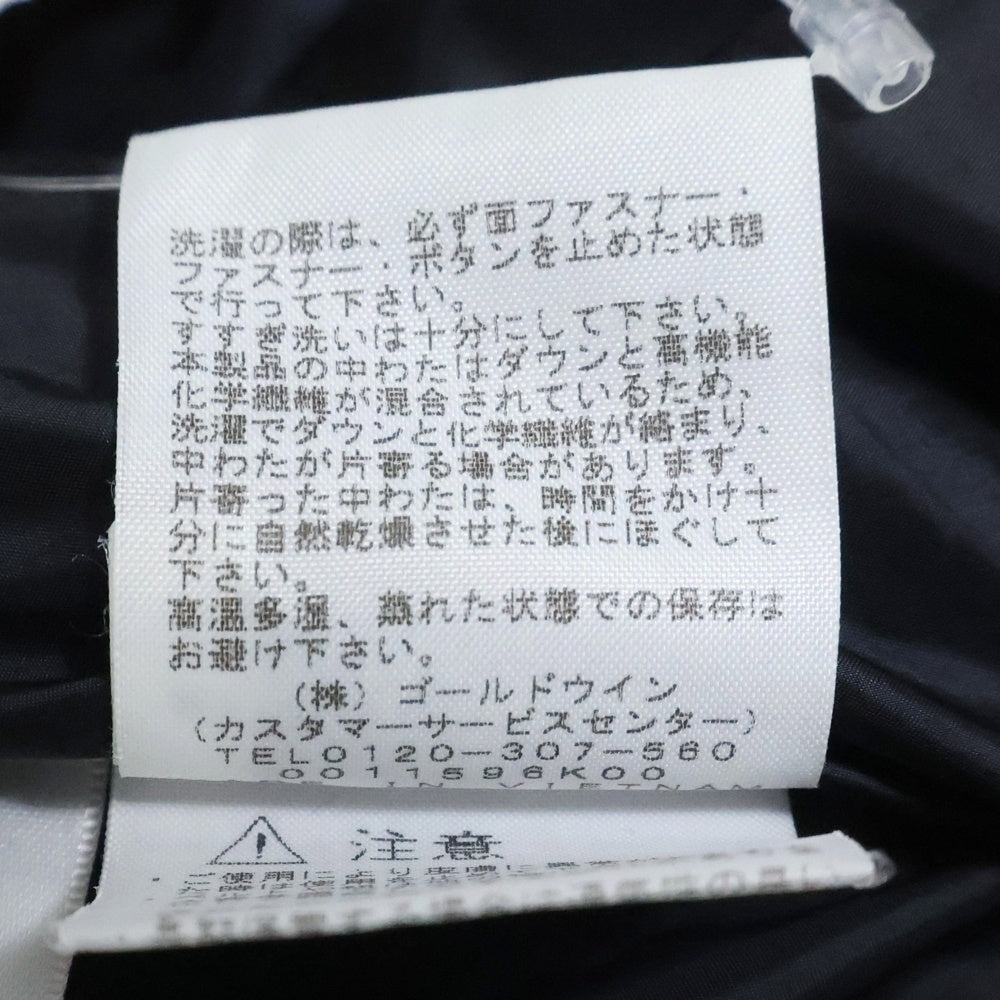 洗濯の際は、必ず面ファスナー・
ファスナー・ボタンを止めた状態
で行って下さい。
すすぎ洗いは十分にして下さい。
本製品の中わたはダウンと高機能
化学繊維が混合されているため、
洗濯でダウンと化学繊維が絡まり、
中わたが片寄る場合があります。
片寄った中わたは、時間をかけ十
分に自然乾燥させた後にほぐして
下さい。
高温多湿、蒸れた状態での保存は
お避け下さい。
(株) ゴールドウイン
(カスタマーサービスセンター)
TEL0120-307-560
0011596K00
IN VIETNAM
注意
ご使用により